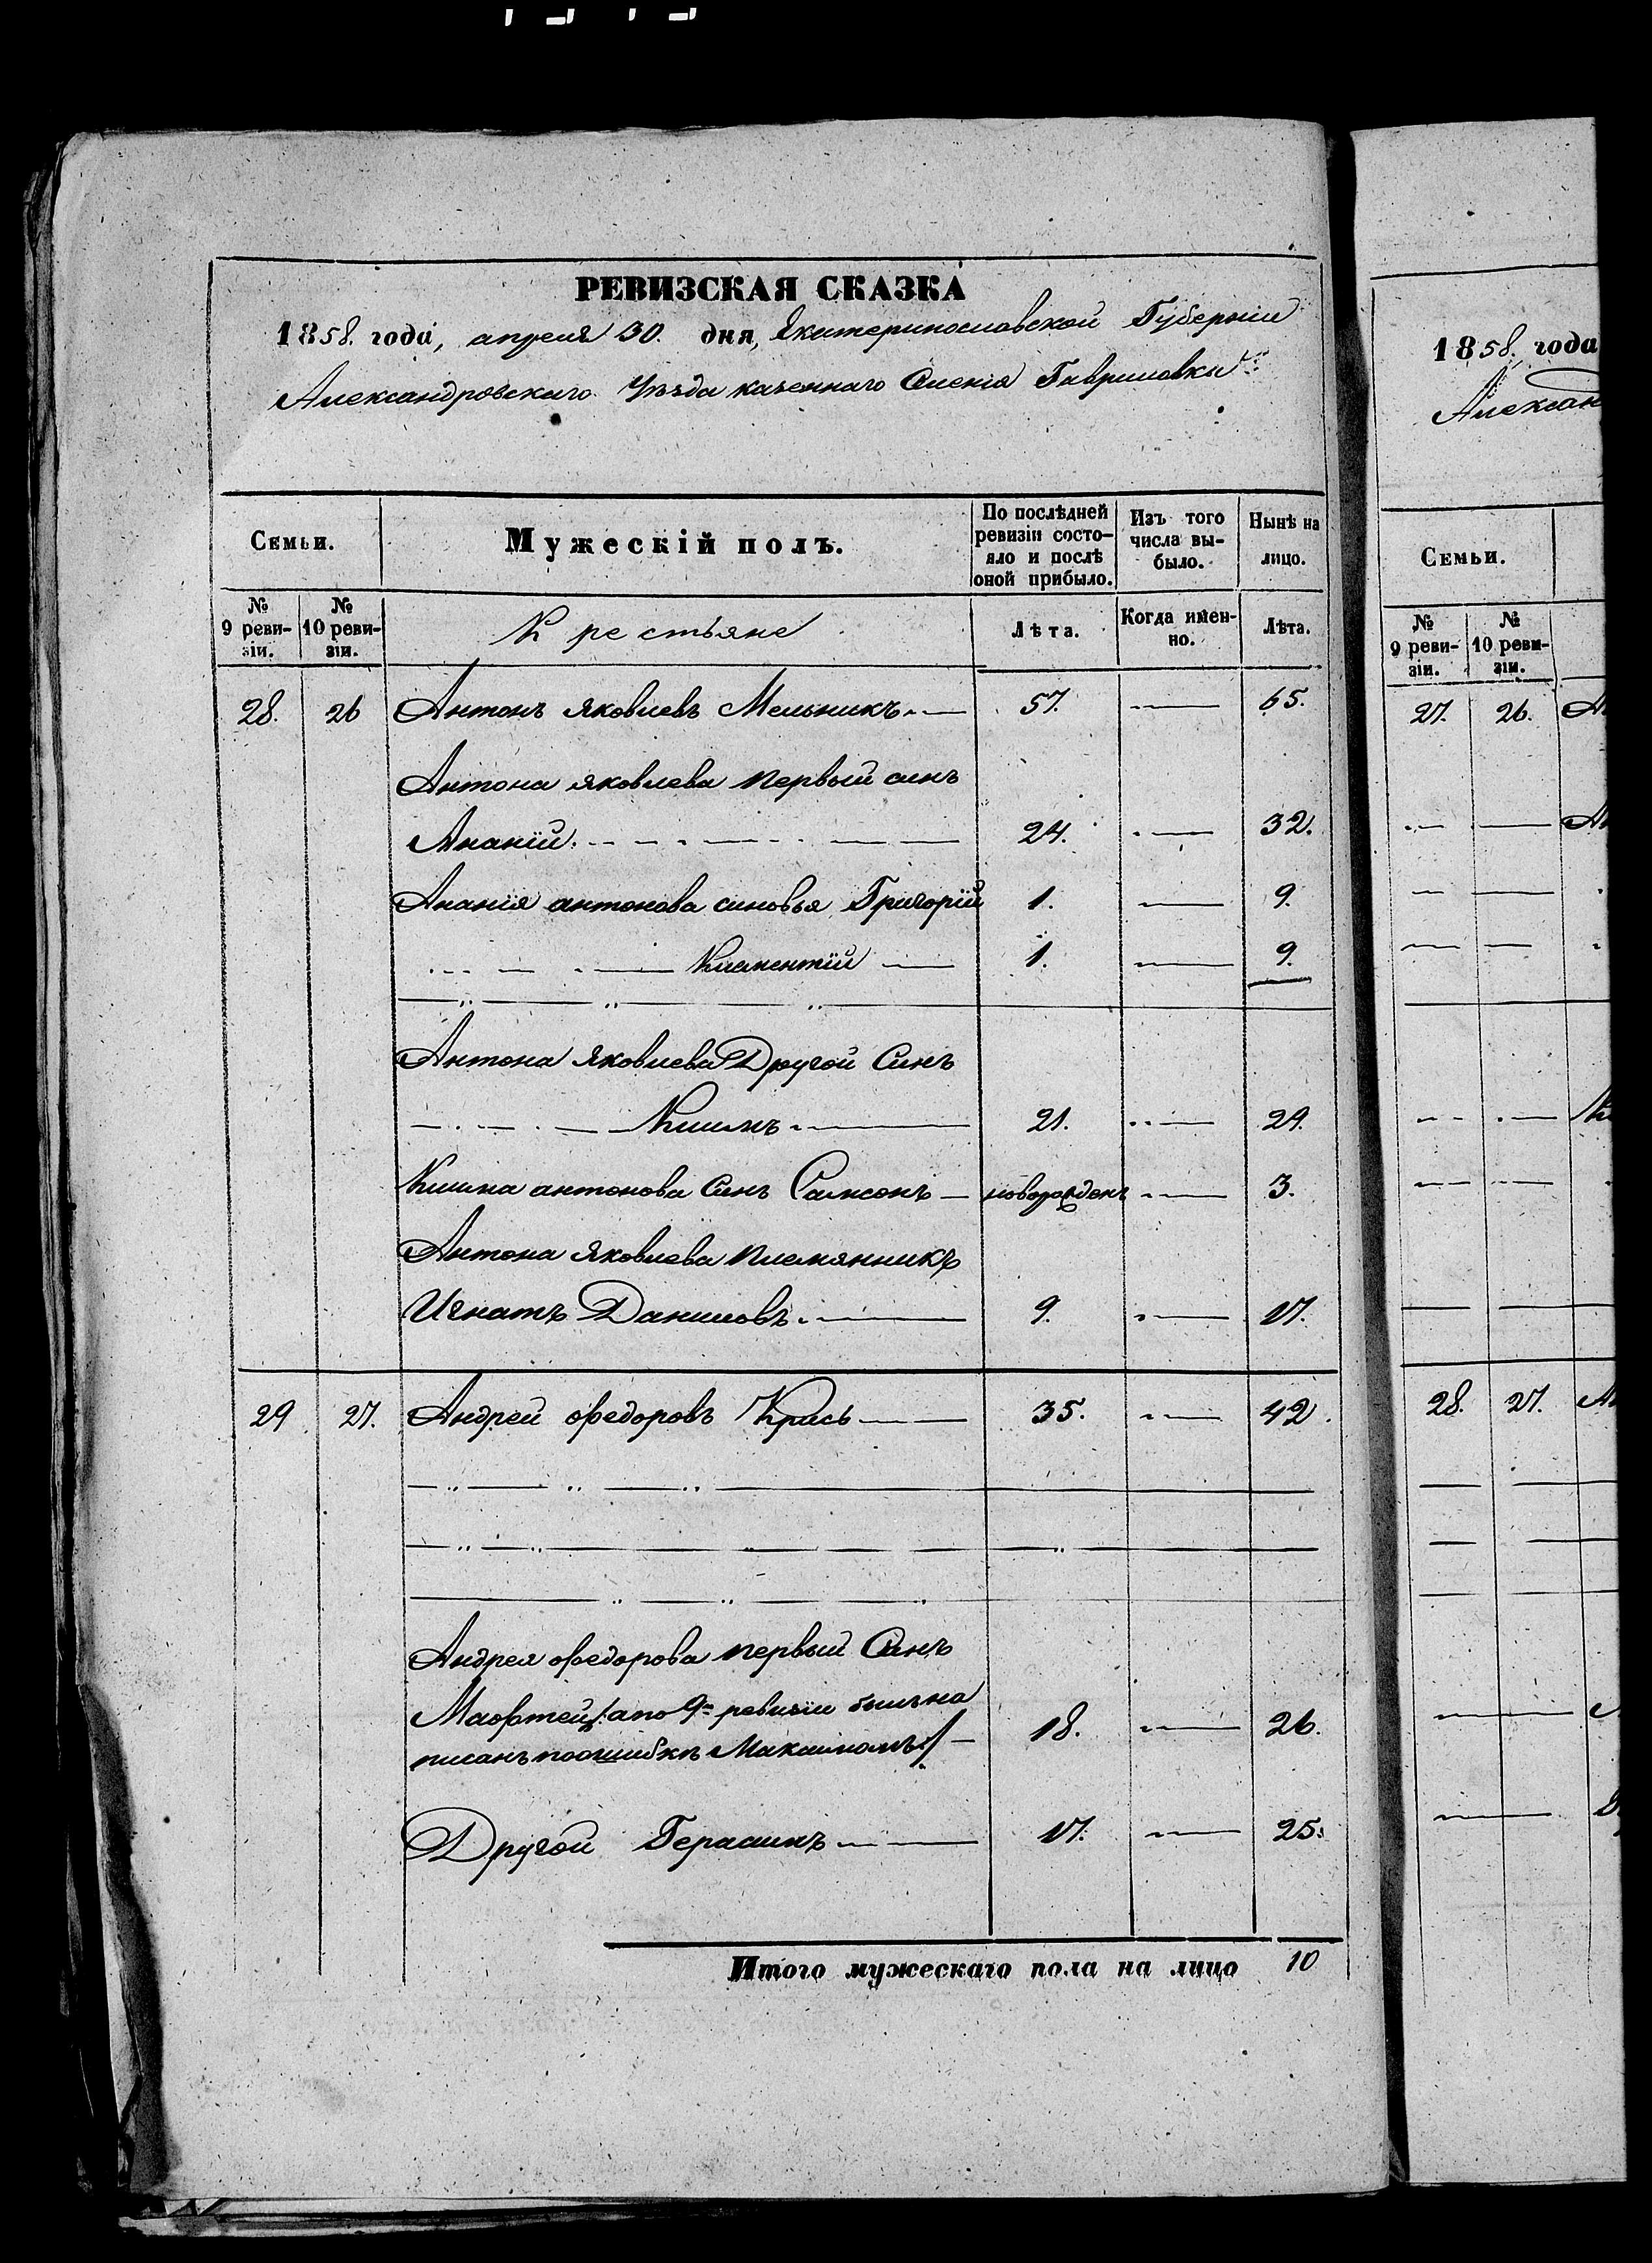 РЕВИЗСКАЯ СКАЗКА
1858. года, апреля 30. дня, Екатеринославской Губерніи
Александровскаго Уѣзда казеннаго Селенія Гавриловки
Семьи.
Мужескій полъ.
По послѣдней ревизіи состояло и послѣ оной прибыло.
Изъ того числа выбыло.
Нынѣ на лицо.
№ 9 ревизіи.
№ 10 ревизіи.
Крестьяне
Лѣта.
Когда именно.
Лѣта.
28. 26 Антонъ Яковлевъ Мельникъ 57. 65.
Антона Яковлева первый синъ
Ананій 24. 32.
Ананія антонова синовья Григорій 1. 9.
Климентій 1. 9.
Антона Яковлева Другой Синъ
Климъ 21. 29.
Клима антонова Синъ Самсонъ новорожденъ 3.
Антона Яковлева племянникъ
Игнатъ Даниловъ 9. 17.
29 27. Андрей Федоровъ Крись 35. 42.
Андрея Федорова первый Синъ
Маофтей /: а по 9й ревизіи былъ на
писанъ поошибкѣ Максимомъ :/ 18. 26.
Другой Герасимъ 17. 25.
Итого мужескаго пола на лицо 10
1858. года
Алексан
Семьи.
№ 9 ревизіи.
№ 10 ревизіи.
27. 26.
28. 27.